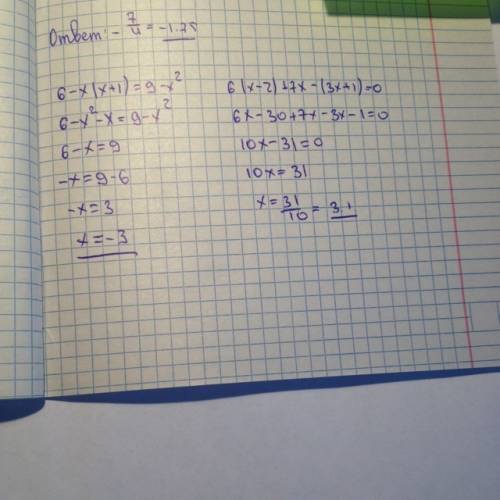 Ответ: - 7/4 = -1.75
6-x(x+1)=9-x²
6-x²-x=9-x²
6-x=9
-x=9-6
-x=3
x=-3
6(x-2)+7x-(3x+1)=0
6x-30+7x-3x-1=0
10x-31=0
10x=31
x=31/10=3.1